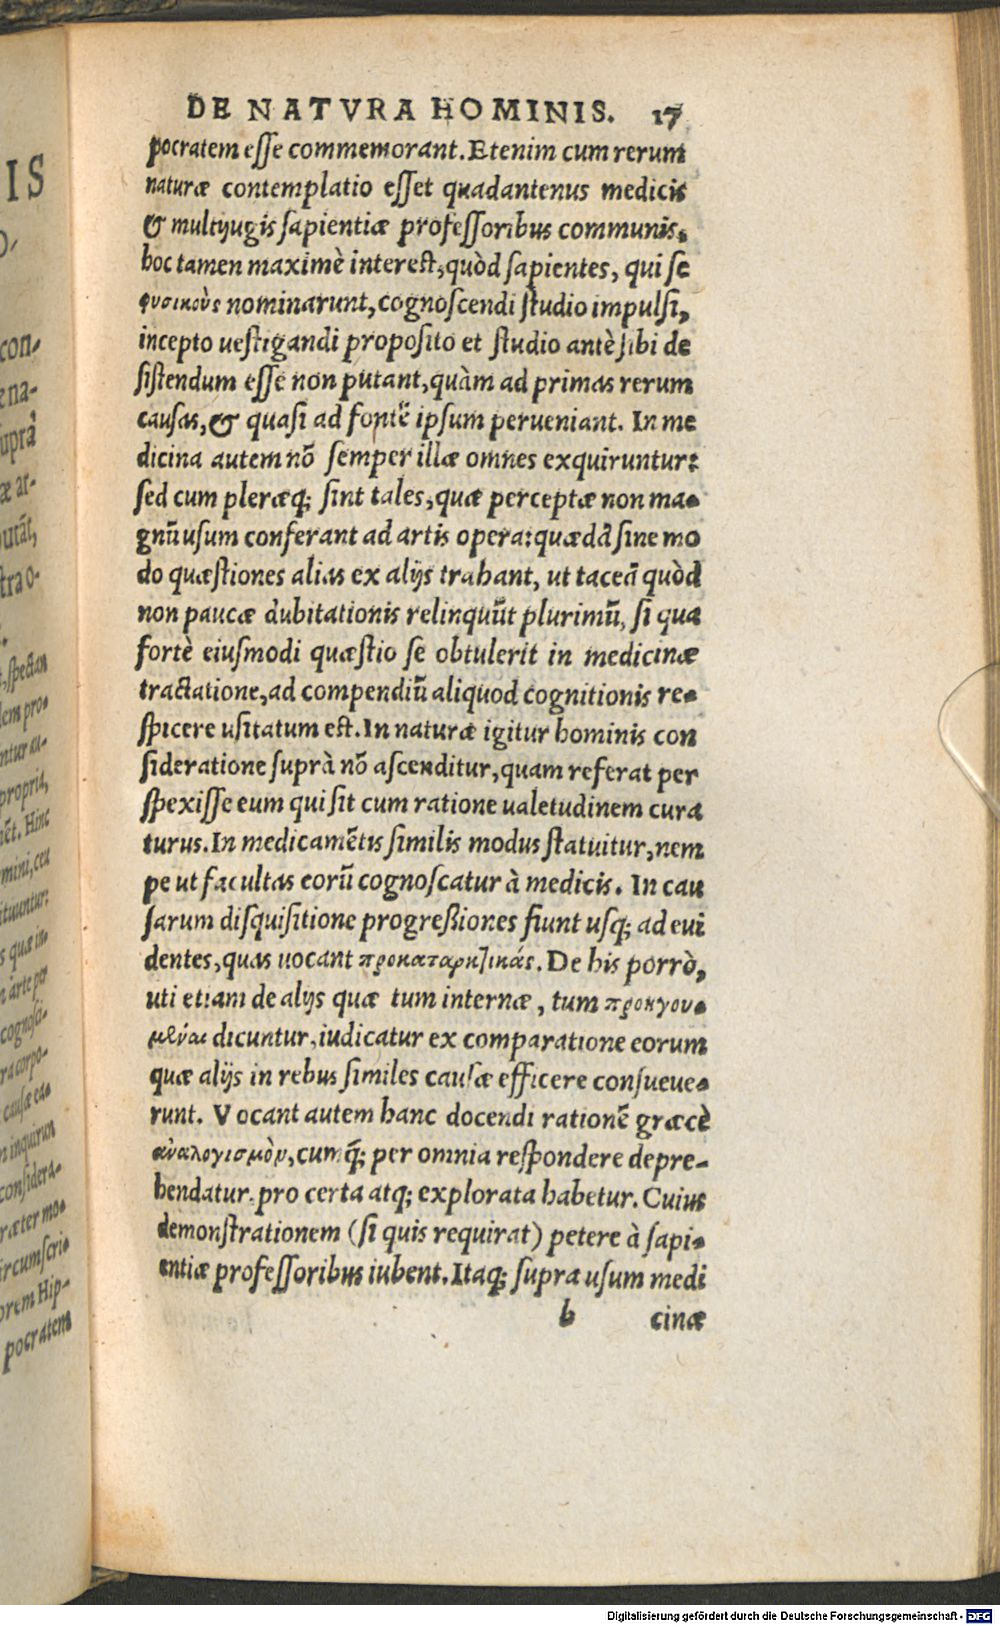 DE NATVRA HOMINIS. 17
pocratem esse commemorant. Etenim cum rerum
naturæ contemplatio esset quadantenus medicis
& multijugis sapientiæ professoribus communis,
hoc tamen maximè interest, quòd sapientes, qui se
φυσικοὺς nominarunt, cognoscendi studio impulsi,
incepto uestigandi proposito et studio antè sibi de
sistendum esse non putant, quàm ad primas rerum
causas, & quasi ad fontẽ ipsum perueniant. In me
dicina autem nõ semper illæ omnes exquiruntur:
sed cum pleræq; sint tales, quæ perceptæ non ma-
gnũ usum conferant ad artis opera: quædã sine mo
do quæstiones alias ex alijs trahant, ut taceã quòd
non paucæ dubitationis relinquũt plurimũ, si qua
fortè eiusmodi quæstio se obtulerit in medicinæ
tractatione, ad compendiũ aliquod cognitionis re-
spicere usitatum est. In naturæ igitur hominis con
sideratione suprà nõ ascenditur, quam referat per
spexisse eum qui sit cum ratione ualetudinem cura
turus. In medicamẽtis similis modus statuitur, nem
pe ut facultas eorũ cognoscatur à medicis. In cau
sarum disquisitione progreßiones fiunt usq; ad eui
dentes, quas uocant προκαταρκτικάς. De his porrò,
uti etiam de alijs quæ tum internæ, tum προηγου-
μέναι dicuntur, iudicatur ex comparatione eorum
quæ alijs in rebus similes causæ efficere consueue-
runt. Vocant autem hanc docendi rationẽ græcè
ἀναλογισμὸν, cumq́; per omnia respondere depre-
hendatur, pro certa atq; explorata habetur. Cuius
demonstrationem (si quis requirat) petere à sapi-
entiæ professoribus iubent. Itaq; supra usum medi
b cinæ
IS
con-
na-
suprà
æ ar-
putãt,
stra o-
spectan
propria,
Hinc
mini, ceu
ituuntur:
s quæ in-
arte per
cognosci-
causæ ea-
inquirun
considera-
præter mo-
circumscri-
Hip-
pocratem
Digitalisierung gefördert durch die Deutsche Forschungsgemeinschaft - DFG